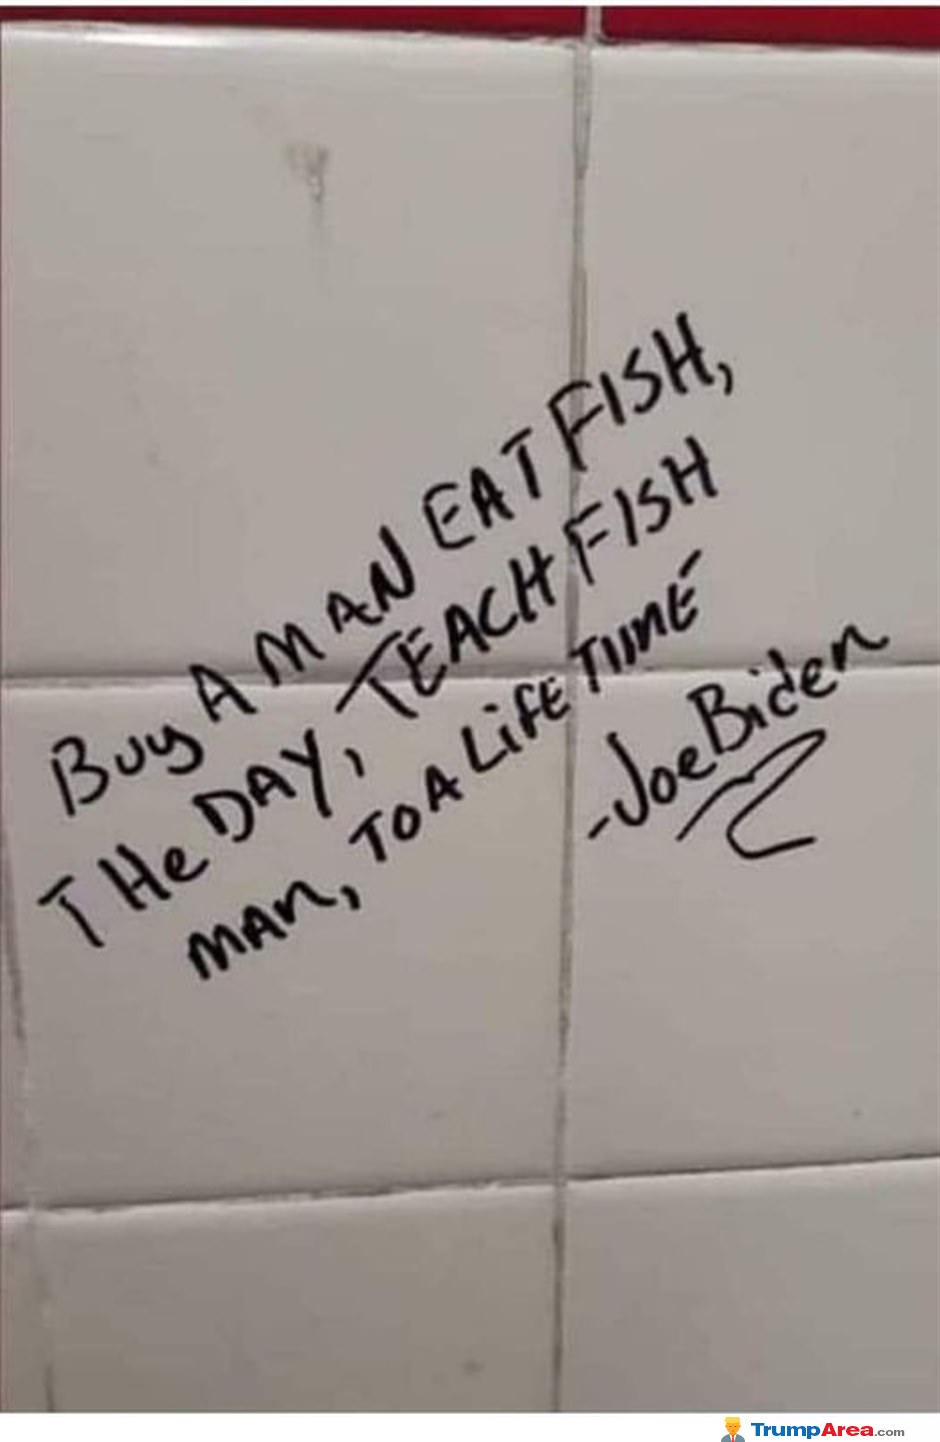 Buy A MAN EAT FISH,
THe DAY, TEACH FISH
MAn, TO A LiFE TIME
-Joe Biden
TrumpArea.com